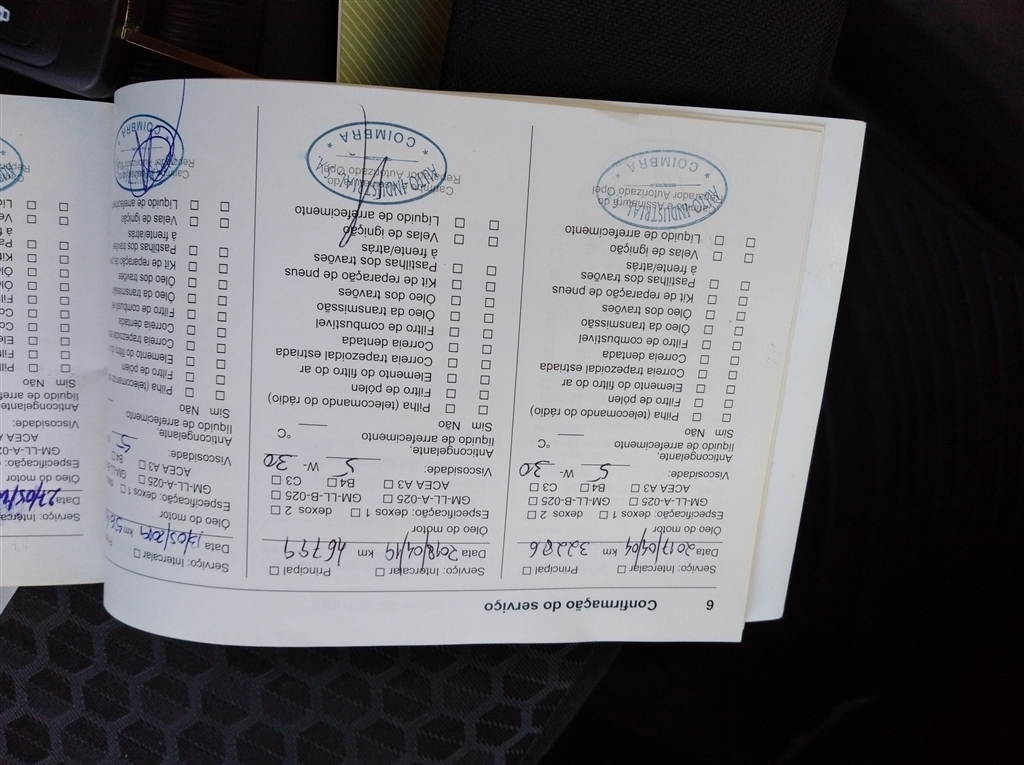 6 Confirmação do serviço
Serviço: Intercalar ☐ Principal ☐
Data 2017/04/04 km 32286
Óleo do motor
Especificação: dexos 1 ☐ dexos 2 ☐
GM-LL-A-025 ☐ GM-LL-B-025 ☐
ACEA A3 ☐ B4 ☐ C3 ☐
Viscosidade: 5 W- 30
Anticongelante,
líquido de arrefecimento ___ °C
Sim Não
☐ ☐ Pilha (telecomando do rádio)
☐ ☐ Filtro de pólen
☐ ☐ Elemento do filtro do ar
☐ ☐ Correia trapezoidal estriada
☐ ☐ Correia dentada
☐ ☐ Filtro de combustível
☐ ☐ Óleo da transmissão
☐ ☐ Óleo dos travões
☐ ☐ Kit de reparação de pneus
☐ ☐ Pastilhas dos travões
à frente/atrás
☐ ☐ Velas de ignição
☐ ☐ Líquido de arrefecimento
Carimbo e Assinatura do
Reparador Autorizado Opel
AUTO-INDUSTRIAL
* COIMBRA *
Serviço: Intercalar ☐ Principal ☐
Data 2018/04/19 km 46799
Óleo do motor
Especificação: dexos 1 ☐ dexos 2 ☐
GM-LL-A-025 ☐ GM-LL-B-025 ☐
ACEA A3 ☐ B4 ☐ C3 ☐
Viscosidade: 5 W- 30
Anticongelante,
líquido de arrefecimento ___ °C
Sim Não
☐ ☐ Pilha (telecomando do rádio)
☐ ☐ Filtro de pólen
☐ ☐ Elemento do filtro do ar
☐ ☐ Correia trapezoidal estriada
☐ ☐ Correia dentada
☐ ☐ Filtro de combustível
☐ ☐ Óleo da transmissão
☐ ☐ Óleo dos travões
☐ ☐ Kit de reparação de pneus
☐ ☐ Pastilhas dos travões
à frente/atrás
☐ ☐ Velas de ignição
☐ ☐ Líquido de arrefecimento
Carimbo e Assinatura do
Reparador Autorizado Opel
AUTO-INDUSTRIAL
* COIMBRA *
Serviço: Intercalar ☐
Data 13/05/2019 km
Óleo do motor
Especificação: dexos 1 ☐
GM-LL-A-025 ☐
ACEA A3 ☐ B4 ☐
Viscosidade: 5
Anticongelante,
líquido de arrefecimento
Sim Não
☐ ☐ Pilha (telecomando
☐ ☐ Filtro de pólen
☐ ☐ Elemento do filtro do
☐ ☐ Correia trapezoidal
☐ ☐ Correia dentada
☐ ☐ Filtro de combustível
☐ ☐ Óleo da transmissão
☐ ☐ Óleo dos travões
☐ ☐ Kit de reparação de
☐ ☐ Pastilhas dos travões
à frente/atrás
☐ ☐ Velas de ignição
☐ ☐ Líquido de
Reparador Autorizado
* COIMBRA *
Serviço:
Data
Óleo do motor
Especificação:
ACEA A3
Viscosidade:
Anticongelante
Sim Não